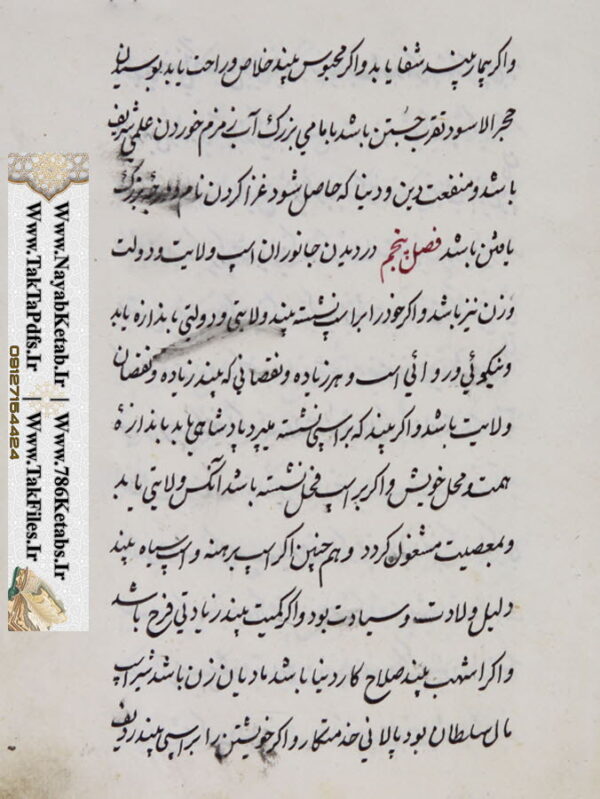 واکر بیمار بیند شفا یابد واکر محبوس بیند خلاص وراحت یابد بوسیدن
حجر الاسود تقرب جستن باشد با مامی بزرک آب زمزم خوردن علمی شریف
باشد ومنفعت دین ودنیا که حاصل شود غزا کردن نام بزرک
یافتن باشد فصل پنجم در دیدن جانوران اسب ولایت ودولت
وزن نیز باشد واکر خودرا بر اسب نشسته بیند ولایتی ودولتی باندازه یابد
ونیکوئی وروائی است وهر زیاده ونقصانی که بیند زیاده ونقصان
ولایت باشد واکر بیند که بر اسپی نشسته میپرد پادشاهی یابد باندازهٔ
همت ومحل خویش واکر بر اسب فحل نشسته باشد آنکس ولایتی یابد
وبمعصیت مشغول کردد وهم چنین اکر اسپ برهنه واسپ سیاه بیند
دلیل ولادت وسیادت بود واکر کمیت بیند زیادتی فرح باشد
واکر اشهب بیند صلاح کار دنیا باشد مادیان زن باشد شیر اسپ
مال سلطان بود پالانی خدمتکار واکر خویشتن را بر اسپی بیند ردیف
Www.NayabKetab.Ir | Www.786Ketabs.Ir
Www.TakTaPdfs.Ir | Www.TakFiles.Ir
09127154424